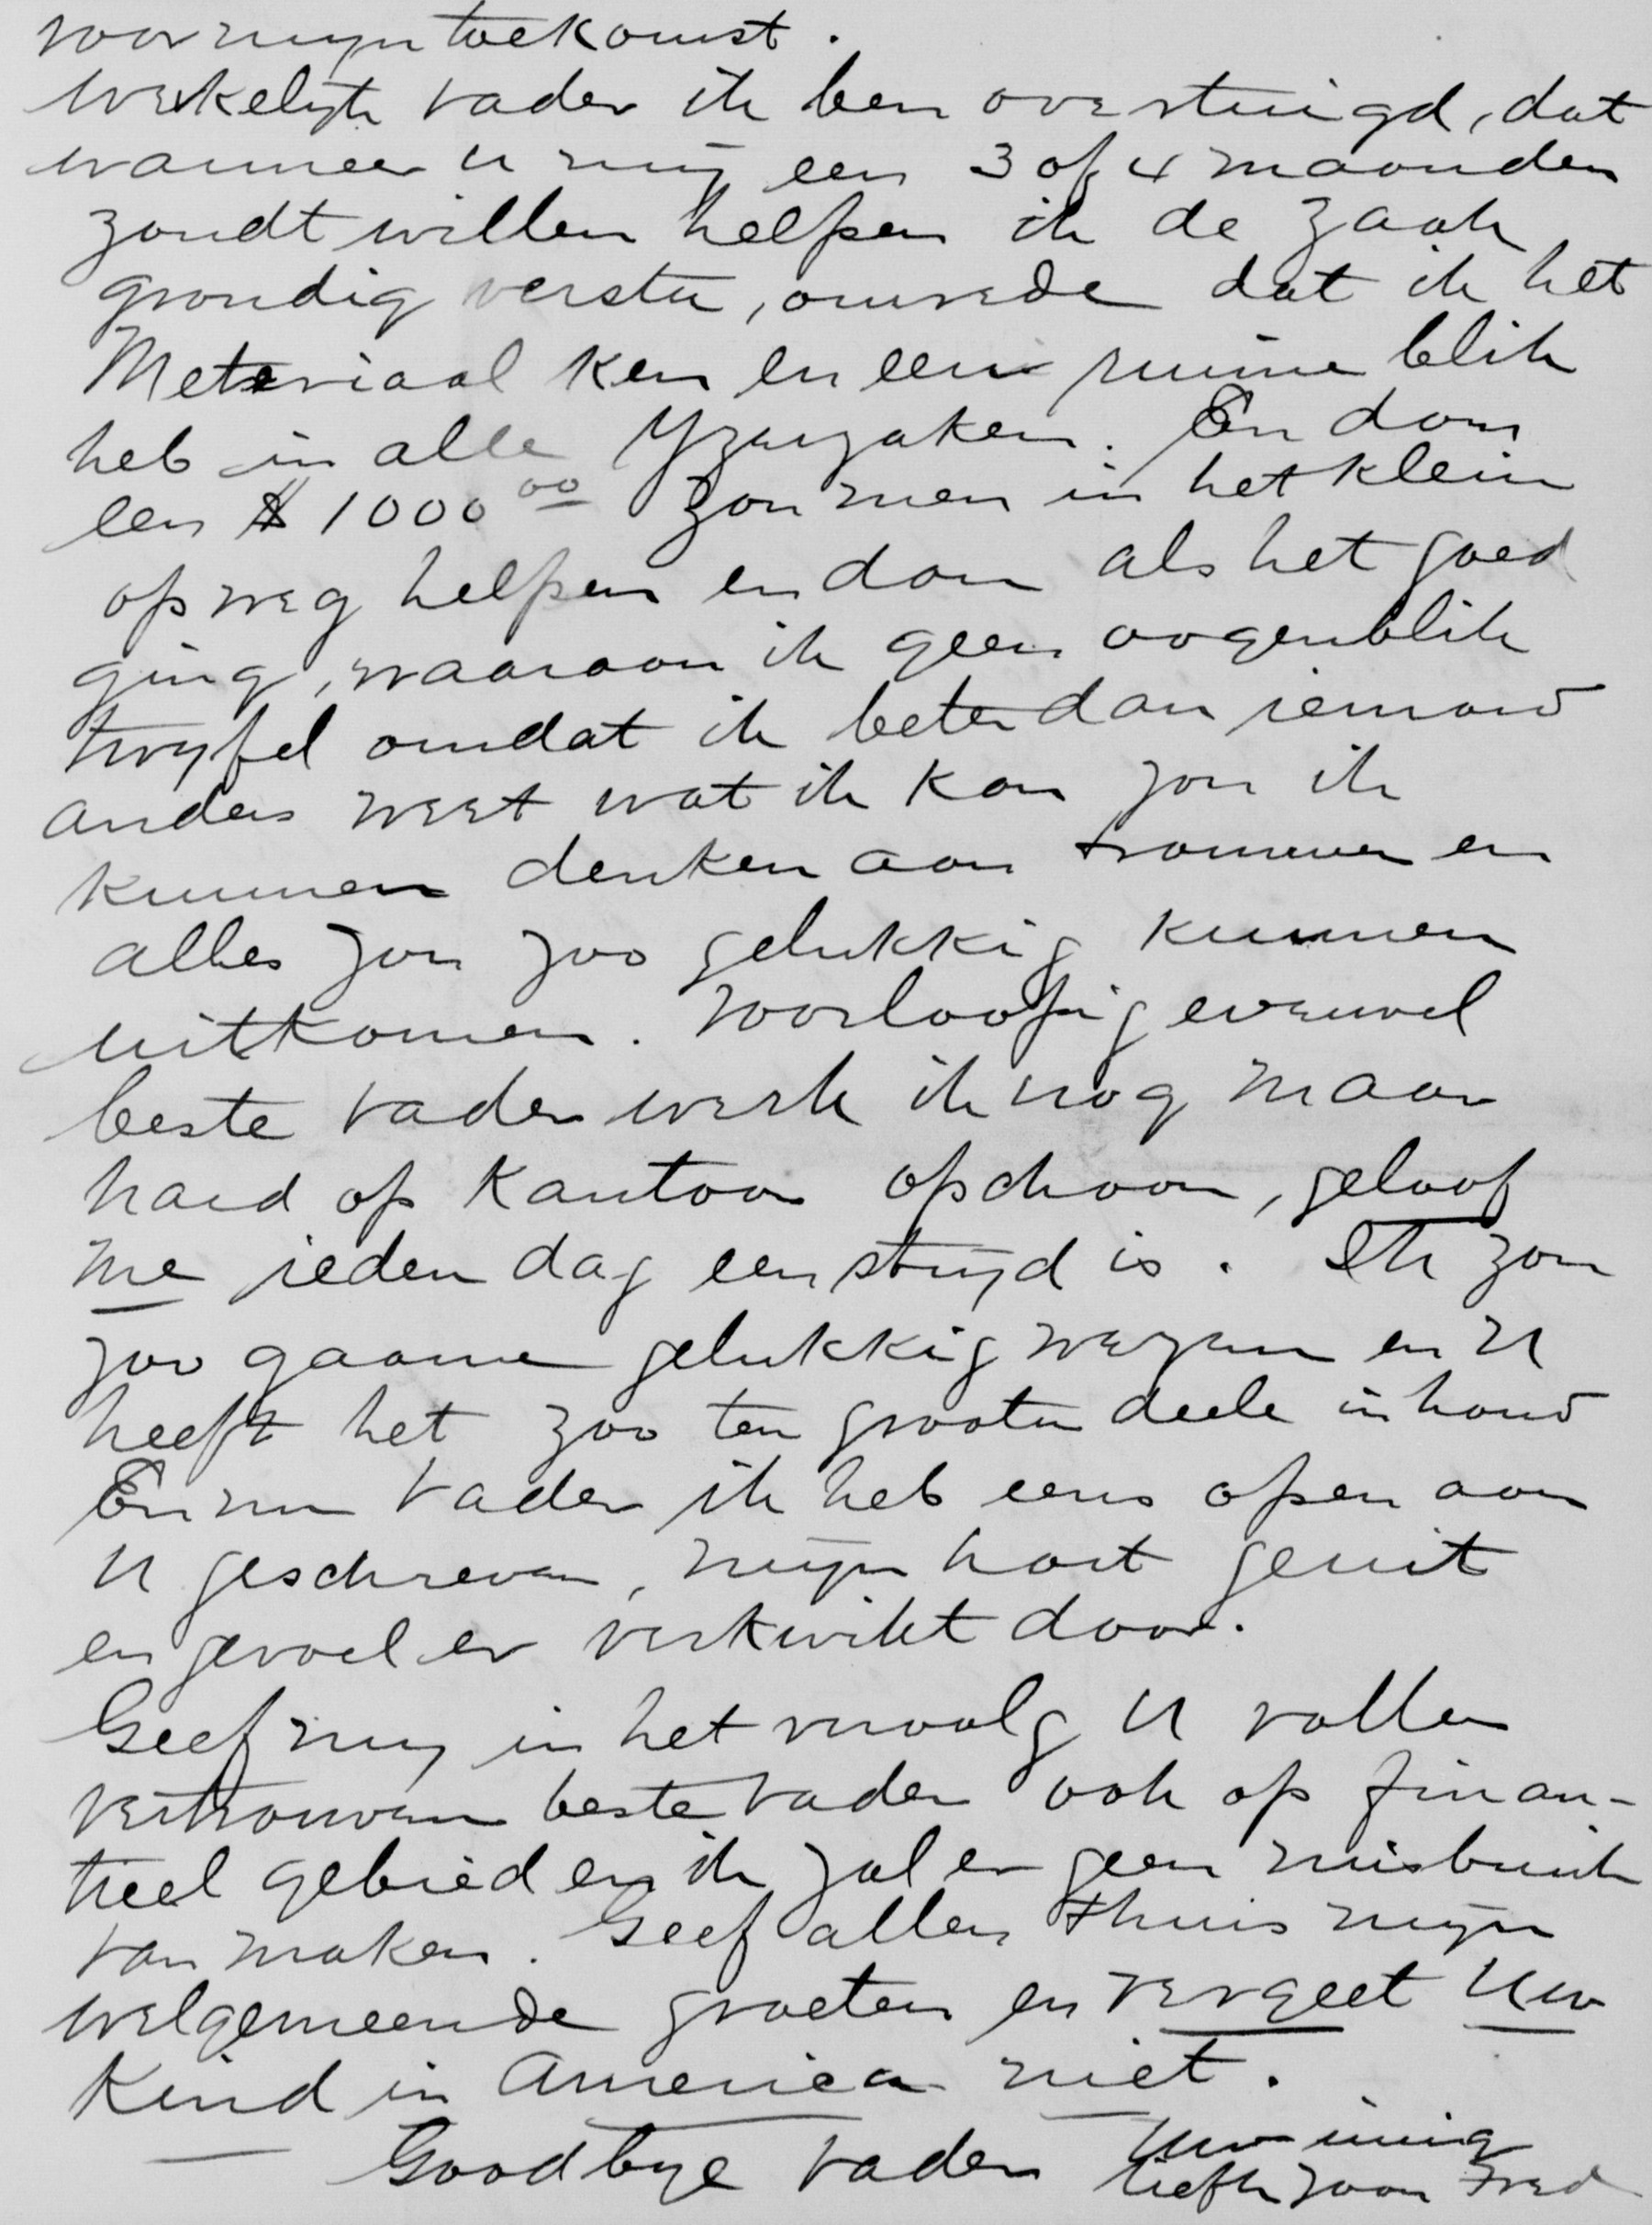 voor mijn toekomst.
werkelijk vader ik ben overtuigd, dat
wanneer U mij een 3 of 4 maanden
zoudt willen helpen ik de zaak
grondig versta, omrede dat ik het
Meteriaal ken en een ruime blik
heb in alle Yzerzaken. En dan
een $ 1000 00 zou men in het klein
op weg helpen en dan als het goed
ging, waaraan ik geen oogenblik
twyfel omdat ik beter dan iemand
anders weet wat ik kan zou ik
kunnen denken aan trouwen en
alles zou zoo gelukkig kunnen
uitkomen. Voorloopig evenwel
beste vader werk ik nog maar
hard op Kantoor ofschoon, geloof
me ieder dag een strijd is. Ik zou
zoo gaarne gelukkig wezen en U
heeft het zoo ten grooten deele in hand
En nu Vader ik heb eens open aan
U geschreven, mijn hart geuit
en gevoel er verkwikt door.
Geef mij in het vervolg U vollen
vertrouwen beste vader ook op finan-
tieel gebied en ik zal er geen misbruik
van maken. Geef allen thuis mijn
welgemeende groeten en vergeet Uw
Kind in America niet.
Goodbye Vader Uw innig
liefh zoon Fred